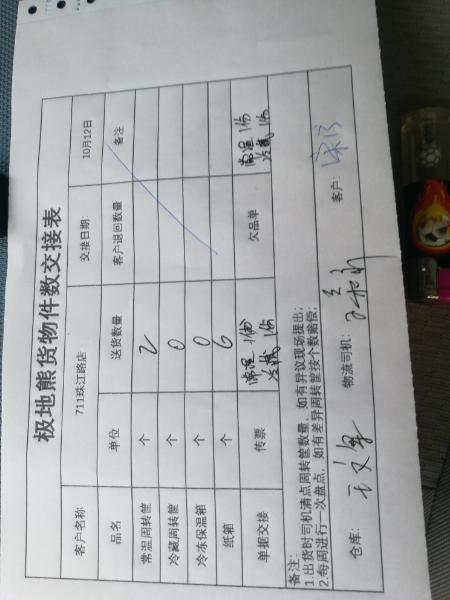 极地熊货物件数交接表
客户名称 711珠江路店 交接日期: 10月12日
品名 单位 送货数量 客户退回数量 备注
常温周转筐 个 2
冷藏周转筐 个 0
冷冻保温箱 个 0
纸箱 个 6
单据交接 传票 常温 1份 欠品单 常温 1份
冷藏 1份 冷藏 1份
备注:
1.出货时司机清点周转筐数量，如有异议现场提出;
2.每周进行一次盘点，如有差异周转筐按个数赔偿;
仓库: 物流司机: 客户: